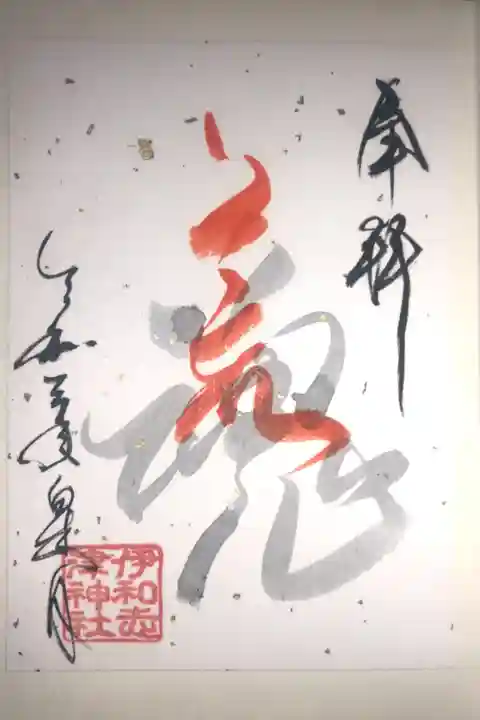 奉拝
令和三年皐月
伊和志
津神社